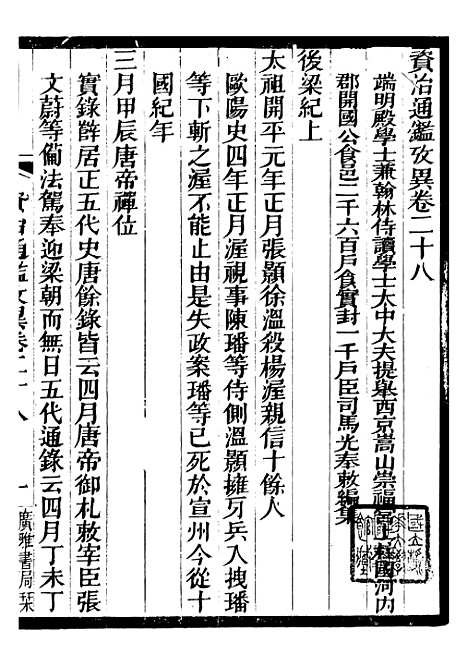 資治通鑑攷異卷二十八
端明殿學士兼翰林侍讀學士太中大夫提舉西京嵩山崇福宮上柱國河內
郡開國公食邑二千六百戶食實封一千戶臣司馬光奉敕編集
後梁紀上
太祖開平元年正月張顥徐溫殺楊渥親信十餘人
歐陽史四年正月渥視事陳璠等侍側溫顥擁牙兵入拽璠
等下斬之渥不能止由是失政案璠等已死於宣州今從十
國紀年
三月甲辰唐帝禪位
實錄薛居正五代史唐餘錄皆云四月唐帝御札敕宰臣張
文蔚等備法駕奉迎梁朝而無日五代通錄云四月丁未丁
資治通鑑攷異卷二十八
一
廣雅書局栞